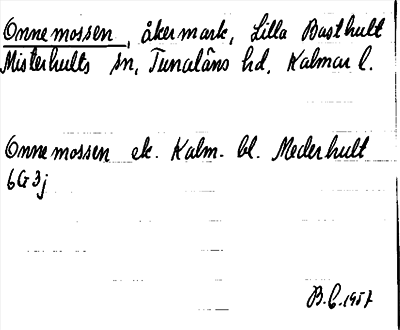 Onnemossen, åkermark, Lilla Basthult
Misterhults sn, Tunaläns hd, Kalmar l.
Onnemossen ek. Kalm. bl. Mederhult
6G3j
B.C. 1957